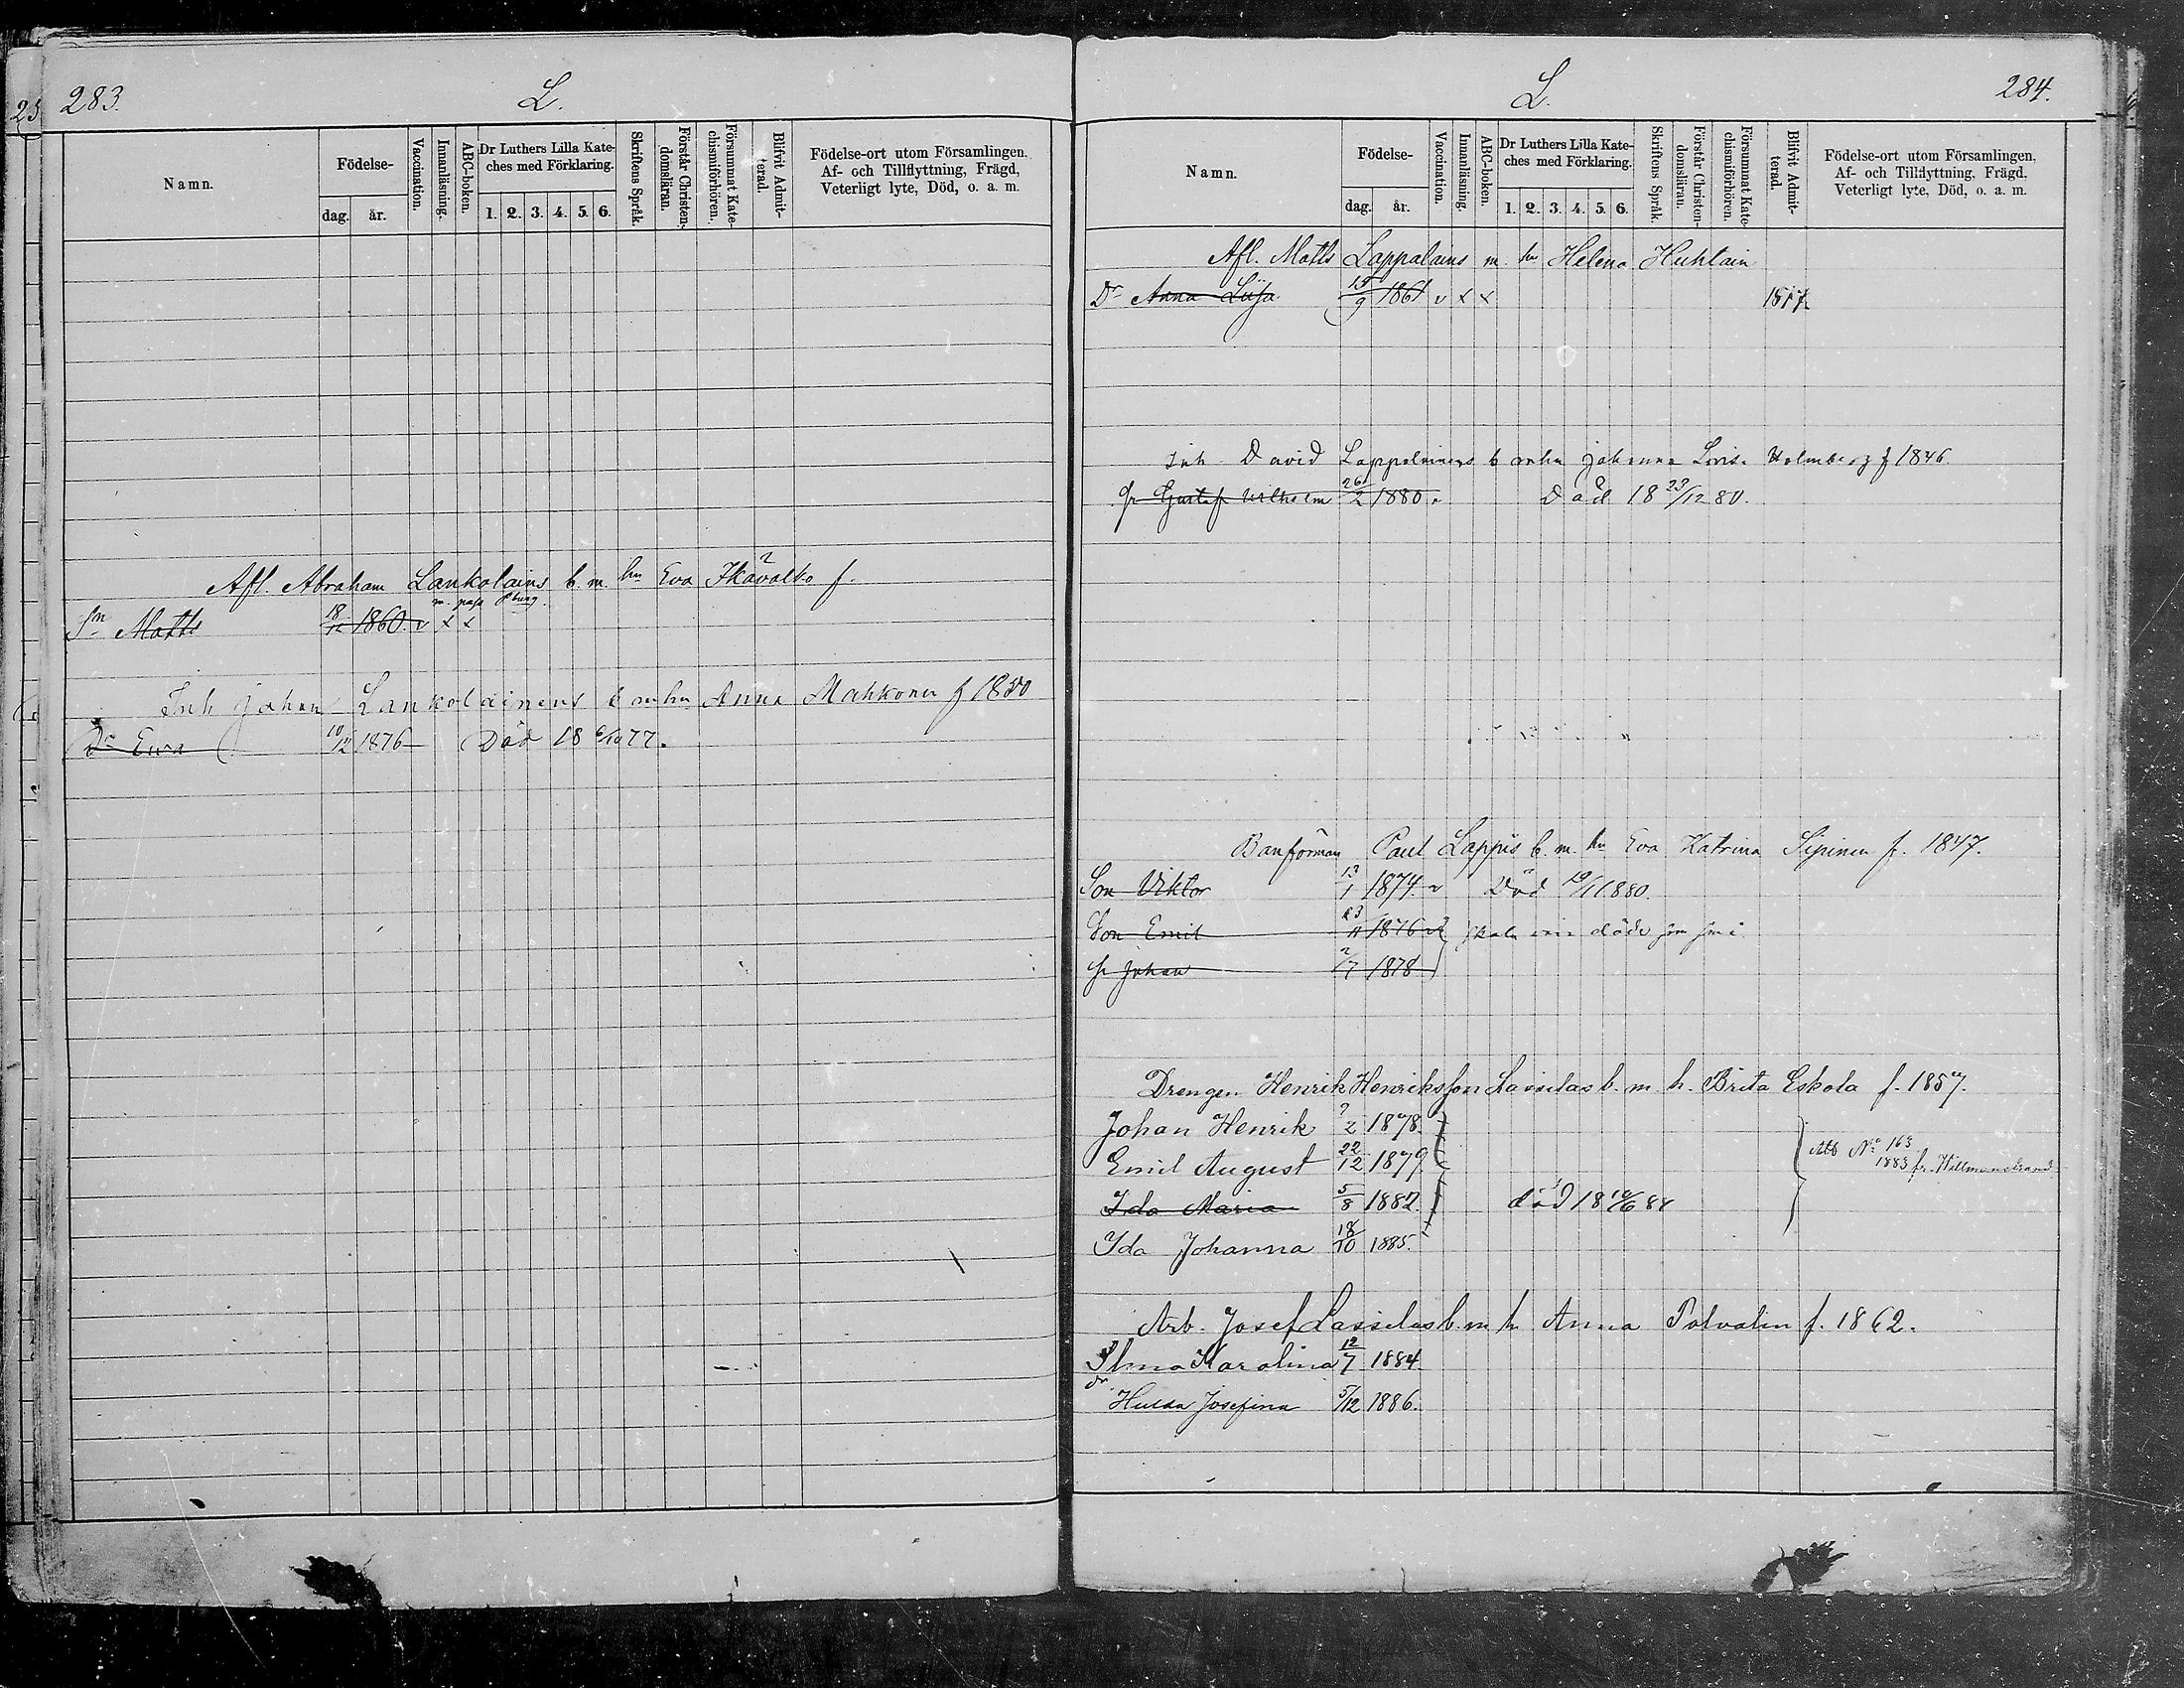 283.
L.
Namn.
Födelse-
dag. år.
Vaccination.
Innanläsning.
ABC-boken.
Dr Luthers Lilla Kate-
ches med Förklaring.
1. 2. 3. 4. 5. 6.
Skriftens Språk.
Förstår Christen-
domsläran.
Försummat Kate-
chismiförhören.
Blifvit Admit-
terad.
Födelse-ort utom Församlingen.
Af- och Tillflyttning, Frägd,
Veterligt lyte, Död, o. a. m.
Afl. Abraham Lankolains b. m. hu Eva f.
Sn Matts 18/12 1860. v x x
Inh Johan Lankolainens b m hu Anna Mahkonen f 1830
Dr Ewa 10/12 1876 Död 18 6/10 77.
L.
284.
Namn.
Födelse-
dag. år.
Vaccination.
Innanläsning.
ABC-boken.
Dr Luthers Lilla Kate-
ches med Förklaring.
1. 2. 3. 4. 5. 6.
Skriftens Språk.
Förstår Christen-
domsläran.
Försummat Kate-
chismiförhören.
Blifvit Admit-
terad.
Födelse-ort utom Församlingen.
Af- och Tillflyttning, Frägd.
Veterligt lyte, Död, o. a. m.
Afl. Matts Lappalains m. hu Helena Huhtain
Dr Anna Lisa 15/9 1861 v x x
Inh David Lappalainens b m hu Johanna Lovisa Holmberg f 1846.
Gustaf Wilhelm 26/2 1880 Död 18 23/12 80.
Banförman Paul Lappis b. m. hu Eva Katrina Sipinen f. 1847.
Son Viktor 13/1 1874 v Död 19/1 1880.
Son Emil 1876 döde som små
Johan 2/7 1878
Drengen Henrik Henriksson Lassilas b. m. h. Brita Eskola f. 1857.
Johan Henrik 2/2 1878.
Emil August 22/12 1879
Attb No 163
1883 fr. Willmanstrand
Ida Maria 5/8 1882. död 18 10/6 84
Ida Johanna 18/10 1885.
Arb. Josef Lassilas b. m h Anna Polvalin f. 1862.
Ilma Karolina 12/7 1884.
dr Hulda Josefina 5/12 1886.